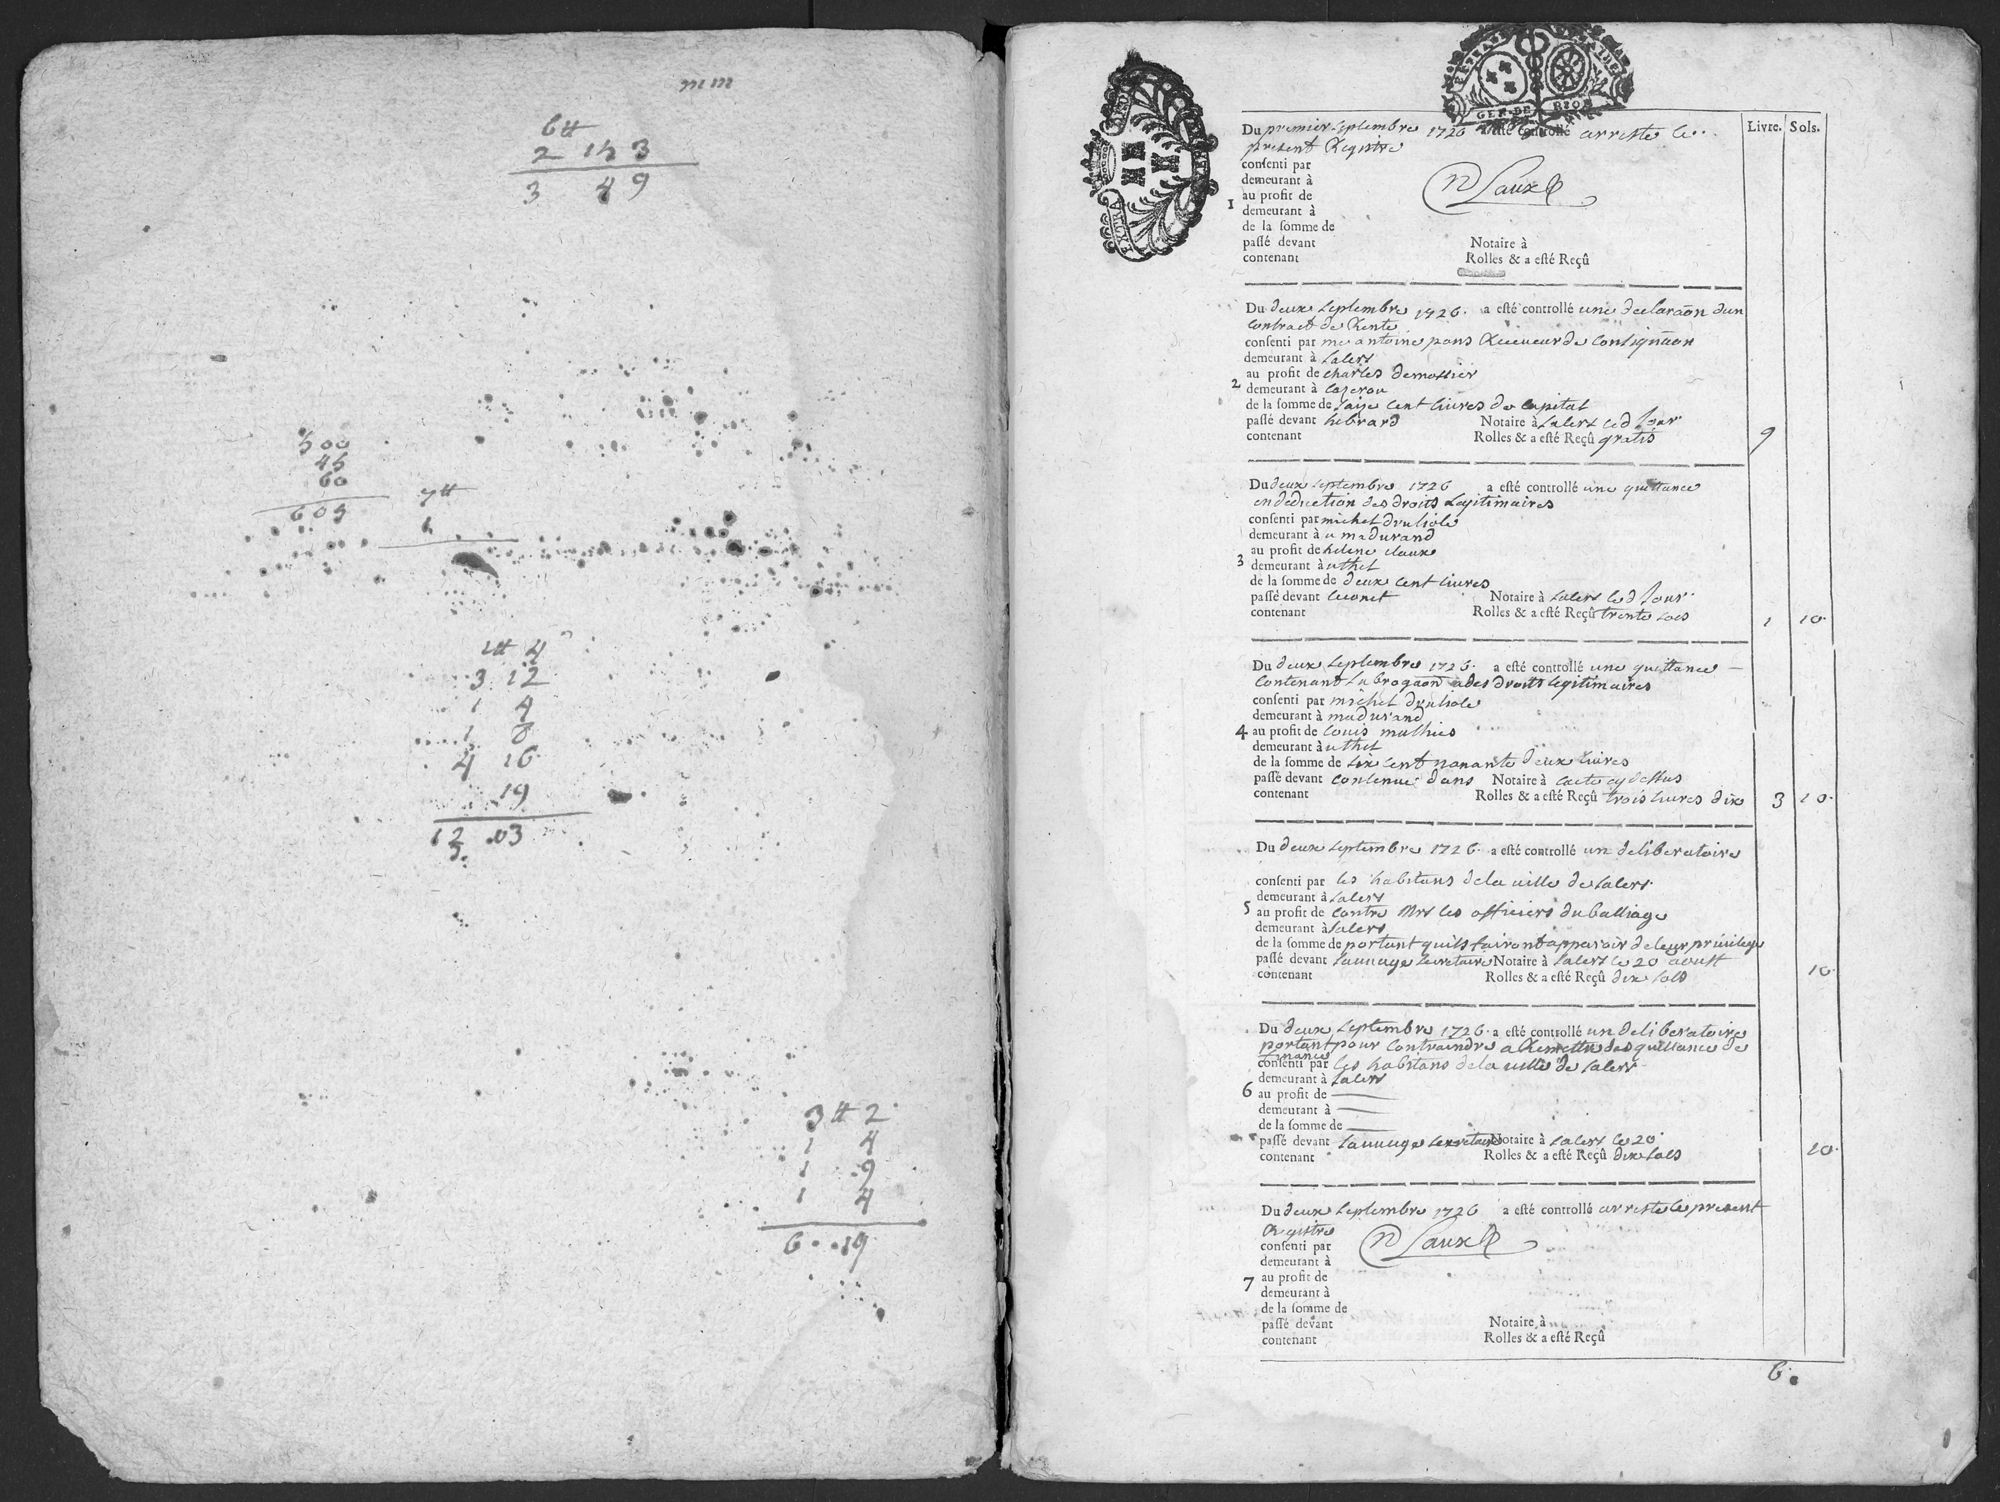 mm
6tt
2 15 3
3 4 9
500
45
60
605
7tt
1tt 4
3 12
1 4
1 8
4 16
19
12 .03
3tt 2
1 4
1 .9
1 4
6 . .19
EXTRA
GEN DE RIOM
Livre. Sols.
Du premier septembre 1726 a esté controllé arresté le
present Registre
consenti par
demeurant à
N Lauxe
au profit de
1
demeurant à
de la somme de
passé devant Notaire à
contenant Rolles & a esté Reçû
Du deux septembre 1726 a esté controllé une declaraõn dun
contract de Rente
consenti par me antoine pons Receveur de consignaõn
demeurant à salers
au profit de charles demossier
2 demeurant à
de la somme de saize cent livres de capital
passé devant hebrard Notaire à salers led Jour
contenant Rolles & a esté Reçû gratis g
Du deux septembre 1726 a esté controllé une quittance
en deduction des droits Legitimaires
consenti par michel druliole
demeurant à a madurand
au profit de helene claux
3 demeurant à uthel
de la somme de deux cent livres
passé devant leconet Notaire à salers led Jour
contenant Rolles & a esté Reçû trente sols 1 10
Du deux septembre 1726 a esté controllé une quittance
contenant subrogaõn ades droits legitimaires
consenti par michel druliole
demeurant à madurand
4 au profit de Louis mathieu
demeurant à uthel
de la somme de six cent nonante deux livres
passé devant contenue dans Notaire à lacte cy dessus
contenant Rolles & a esté Reçû trois livres dix 3 10
Du deux septembre 1726 a esté controllé un deliberatoire
consenti par les habitans dela ville de salers
demeurant à salers
5 au profit de contre Mrs les officiers du balliage
demeurant à salers
de la somme de portant quils fairont apparoir de leur privilege
passé devant sauvage secretaire Notaire à salers le 20 aoust
contenant Rolles & a esté Reçû dix sols 10
Du deux septembre 1726 a esté controllé un deliberatoire
portant pour contraindre a Remettre des quittance de
finance
consenti par les habitans dela ville de salers
demeurant à salers
6 au profit de
demeurant à
de la somme de
passé devant sauvage secretaire Notaire à salers le 20
contenant Rolles & a esté Reçû dix sols 10
Du deux septembre 1726 a esté controllé arresté le present
Registre
consenti par N Lauxe
demeurant à
7 au profit de
demeurant à
de la somme de
passé devant Notaire à
contenant Rolles & a esté Reçû
6
1